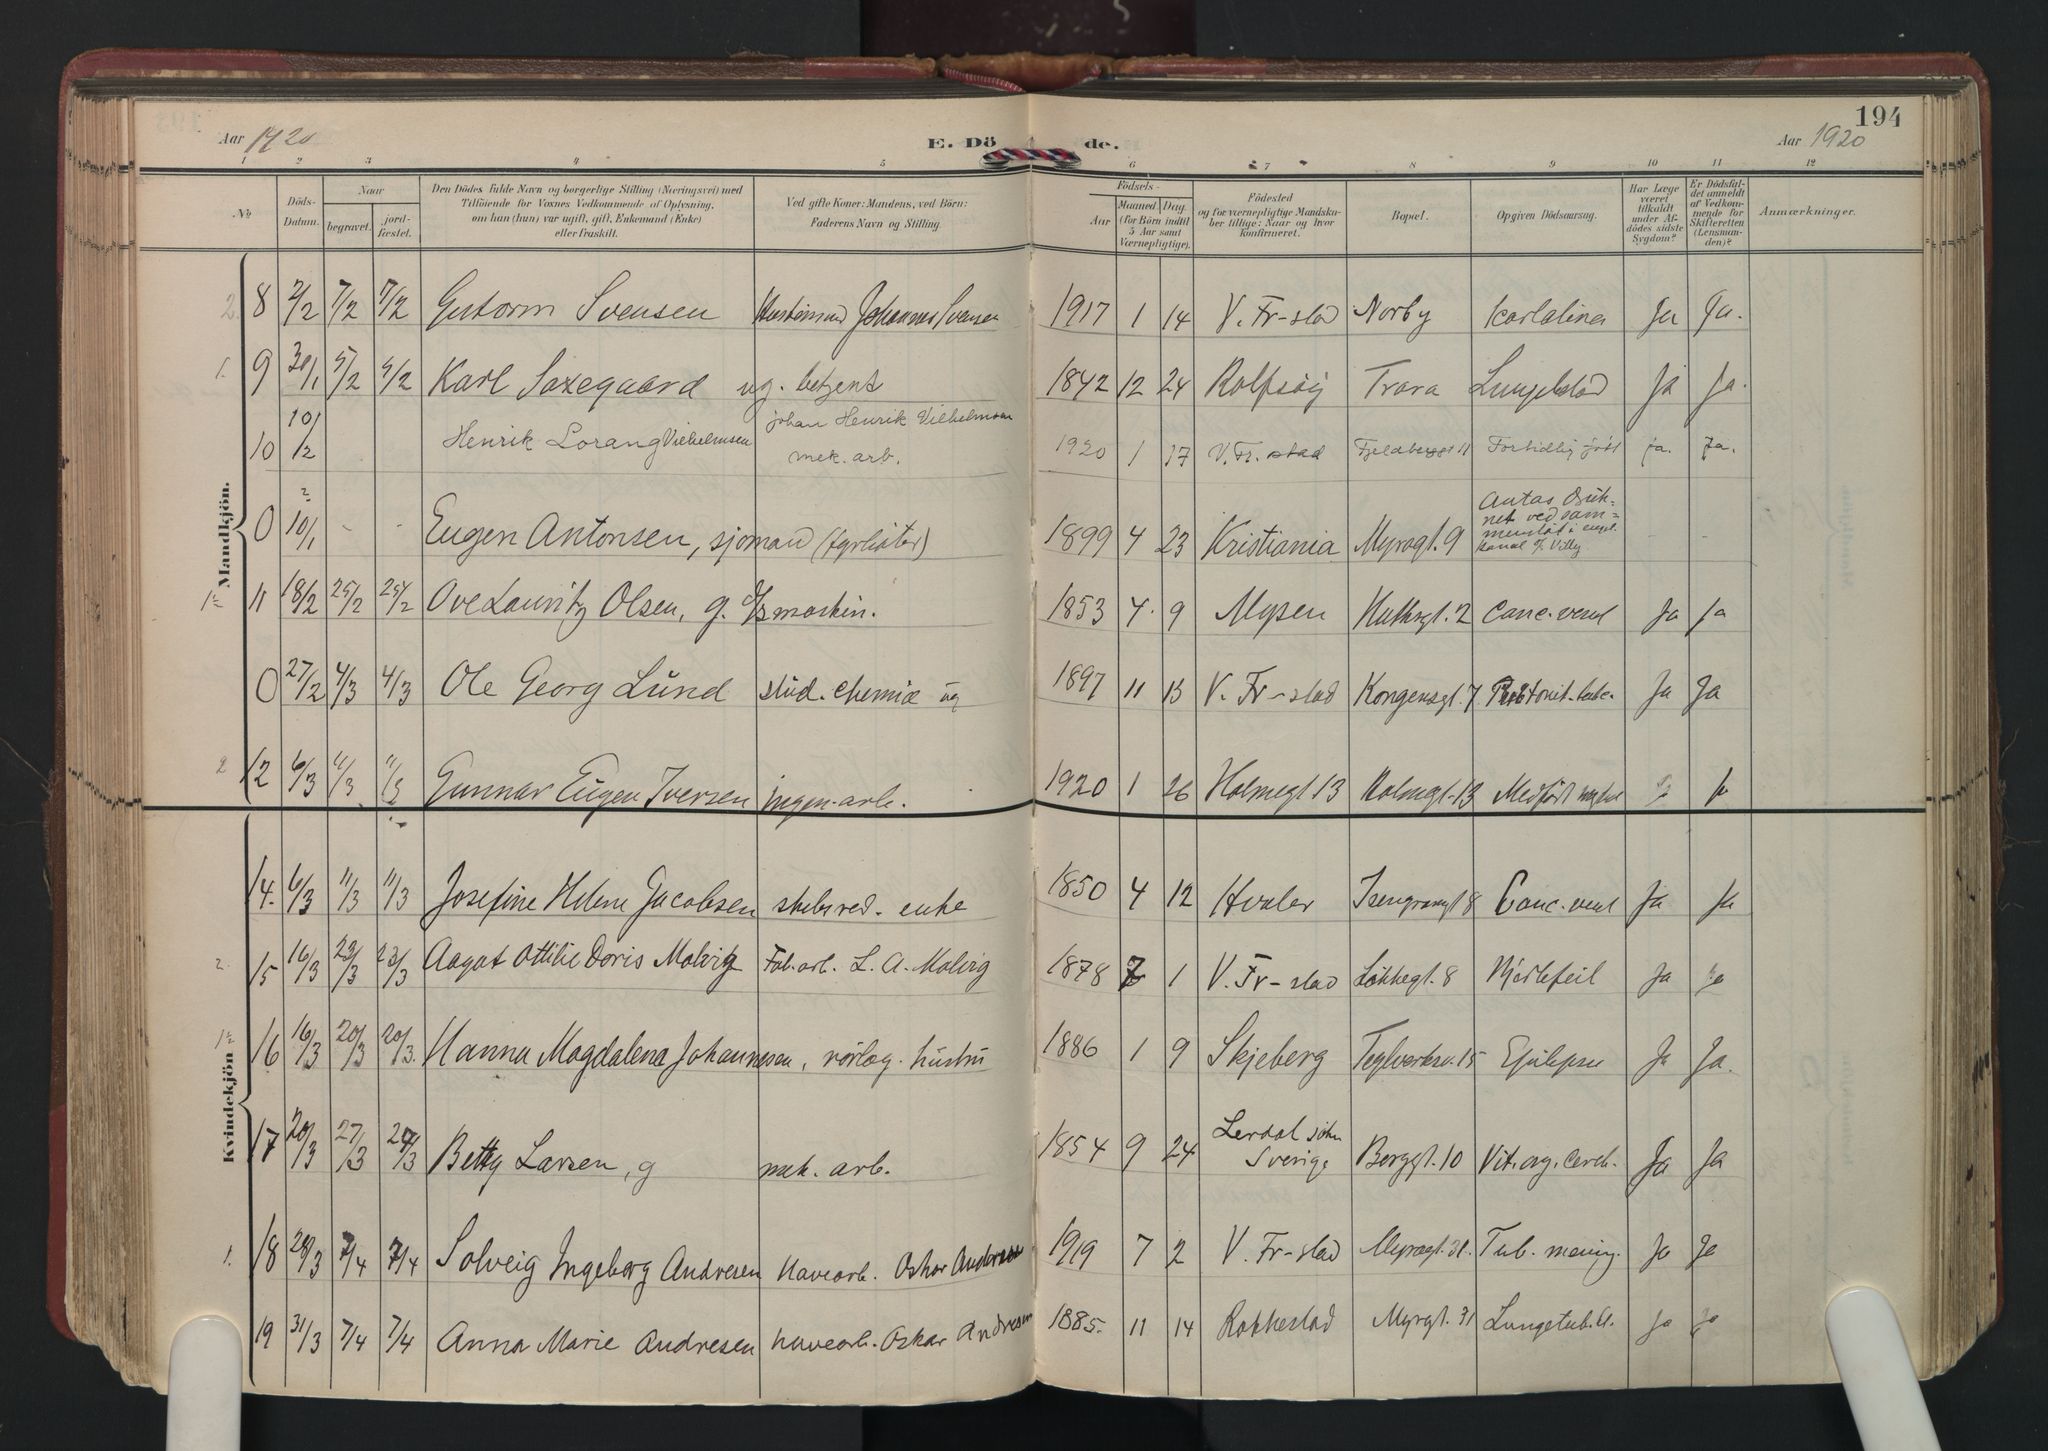 194
Aar 1920
E. Dö de.
Aar 1920
1 2 3 4 5 6 7 8 9 10 11 12
№
Döds-
Datum.
Naar
begravet.
jord-
fæstet.
Den Dödes fulde Navn og borgerlige Stilling (Næringsvei) med
Tilföiende for Voxnes Vedkommende af Oplysning,
om han (hun) var ugift, gift, Enkemand (Enke)
eller fraskilt.
Ved gifte Koner: Mandens, ved Börn:
Faderens Navn og Stilling.
Födsels-
Aar
Maaned
Dag.
(for Börn indtil
5 Aar samt
Værnepligtige).
Födested
og for værnepligtige Mandskа-
ber tillige: Naar og hvor
konfirmeret.
Bopæl.
Opgiven Dödsaarsag.
Har Læge
været
tilkaldt
under Af-
dödes sidste
Sygdom?
Er Dödsfal-
det anmeldt
af Vedkom-
mende for
Skifteretten
(Lensman-
den)?
Anmærkninger.
Mandkjön.
2. 8 2/2 7/2 7/2 Gutorm Svensen Johannes Svensen 1917 1 14 V. Fr-stad Norby Ja Ja.
1. 9 30/1 5/2 5/2 Karl Saxegaard ug. betjent 1842 12 24 Rolfsøy Trara Ja Ja.
10 10/2 Henrik Lorang Vilhelmsen Johan Henrik Vilhelmsen
mek. arb. 1920 1 27 V. Fr. stad Fjeldberggt 11 Fortidlig født Ja. Ja.
0 10/1 - - Eugen Antonsen, sjømand (fyrbøter) 1899 4 23 Kristiania Myragt. 9 Antas druk-
net ved sam-
menstøt i engl.
kanal - -
11 18/2 25/2 25/2 Ove Lauritz Olsen, g. maskin. 1853 4. 9 Mysen 2 Canc. ventr Ja Ja
0 27/2 4/3 4/3 Ole Georg Lund stud. chemiæ ug 1897 11 13 V. Fr-stad Kongensgt. 7 Peritonit. tub. Ja Ja
2 12 6/3 11/3 11/3 Gunnar Eugen Iversen arb. 1920 1 26 Holmegt 13 Holmegt. 13 Medfødt Ja
Kvindekjön
14. 6/3 11/3 11/3 Josefine Helene Jacobsen enke 1850 4 12 Hvaler 8 Canc. ventr Ja Ja
2. 15 16/3 23/3 23/3 Aagot Ottilie Doris Malvig Fab. arb. L. A. Malvig 1878 7 1 V. Fr-stad Løkkegt. 8 Hjertefeil Ja Ja
16 16/3 20/3 20/3. Hanna Magdalena Johannesen, rørlæg. hustru 1886 1 9 Skjeberg Teglverksv. 15 Epilepsi Ja Ja.
17 20/3 27/3 27/3 Betty Larsen, g mek. arb. 1854 9 24 Lerdal
Sverige Berggt. 10 Vit. org. cereb. Ja Ja
1. 18 28/3 7/4 7/4 Solveig Ingeborg Andresen havearb. Oskar Andresen 1919 7 2 V. Fr-stad Myragt. 31. Tub. mening. Ja Ja
19 31/3 7/4 7/4 Anna Marie Andresen havearb. Oskar Andresen 1885. 11 14 Rakkestad Myrgt. 31 Lungetub. Ja Ja